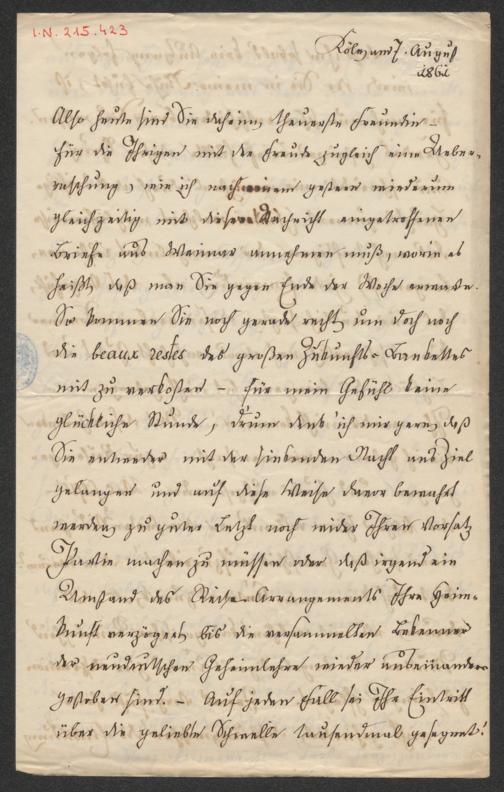 I.N. 215.423
Köln am 7. August
1861
Also heute sind Sie daheim, theuerste Freundin –
für die Ihrigen mit der Freude zugleich eine Ueber-
raschung, wie ich nach einem gestern wiederum
gleichzeitig mit dieser Nachricht eingetroffenen
Briefe aus Weimar annehmen muß, worin es
heißt, daß man Sie gegen Ende der Woche erwarte.
So kommen Sie noch gerade recht, um doch noch
die beaux restes des großen Zukunfts-Banketts
mit zu verkosten – für mein Gefühl keine
glückliche Stunde, drum denk' ich mir gern, daß
Sie entweder mit der sinkenden Nacht ans Ziel
gelangen und auf diese Weise davor bewahrt
werden, zu guter Letzt noch wider Ihren Vorsatz
Partie machen zu müssen oder daß irgend ein
Umstand des Reise-Arrangements Ihre Heim-
kunft verzögert, bis die versammelten Bekenner
der neudeutschen Geheimlehre wieder auseinander-
gestoben sind. – Auf jeden Fall sei Ihr Eintritt
über die geliebte Schwelle tausendmal gesegnet!